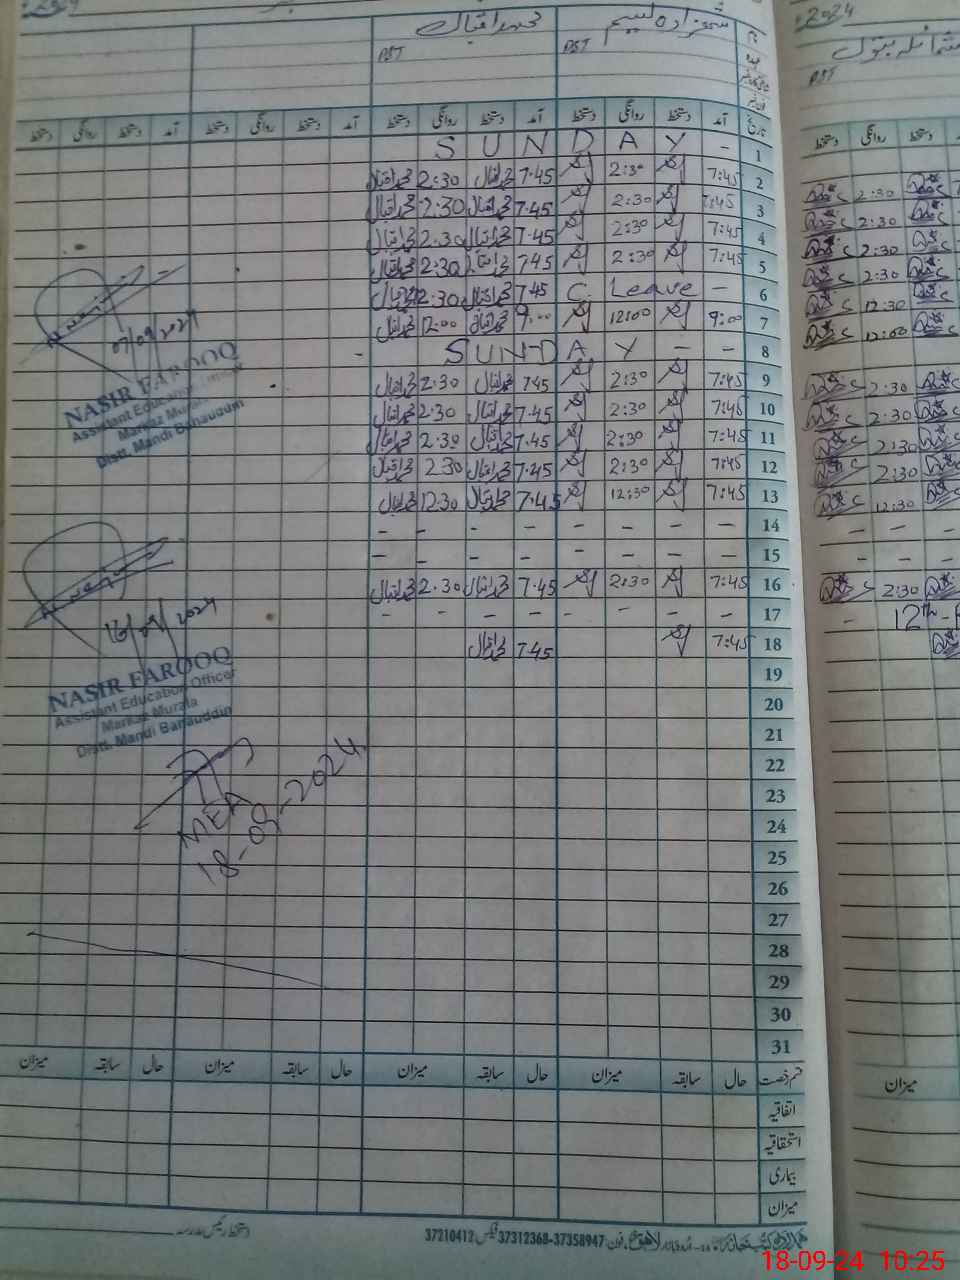 2024
شہزادہ نسیم محمد اقبال
PST PST
نام
عہدہ
تاریخ آمد دستخط روانگی دستخط آمد دستخط روانگی دستخط آمد دستخط روانگی دستخط آمد دستخط روانگی دستخط
1 – S U N D A Y
2 7:45 2:30 7.45 محمد اقبال 2:30 محمد اقبال
3 7:45 2:30 7.45 محمد اقبال 2.30 محمد اقبال
4 7:45 2:30 7.45 محمد اقبال 2.30 محمد اقبال
5 7:45 2:30 745 محمد اقبال 2:30 محمد اقبال
6 – C. Leave 7.45 محمد اقبال 2.30 محمد اقبال
7 9:00 12:00 9:00 محمد اقبال 12:00 محمد اقبال
8 – – SUNDAY
9 7:45 2:30 745 محمد اقبال 2.30 محمد اقبال
10 7:45 2:30 7.45 محمد اقبال 2.30 محمد اقبال
11 7:45 2:30 7.45 محمد اقبال 2.30 محمد اقبال
12 7:45 2:30 7.45 محمد اقبال 2.30 محمد اقبال
13 7:45 12:30 7.45 محمد اقبال 12.30 محمد اقبال
14 – – – – – – – –
15 – – – – – – – –
16 7:45 2:30 7.45 محمد اقبال 2.30 محمد اقبال
17 – – – – – – – –
18 7:45 7.45 محمد اقبال
19
20
21
22
23
24
25
26
27
28
29
30
31
07/09/2024
NASIR FAROOQ
Assistant Education Officer
Markaz Murala
Distt. Mandi Bahauddin
16/09/2024
NASIR FAROOQ
Assistant Education Officer
Markaz Murala
Distt. Mandi Bahauddin
MEA
18-09-2024
قسم رخصت حال سابقہ میزان حال سابقہ میزان حال سابقہ میزان حال سابقہ میزان
اتفاقیہ
استحقاقیہ
بیماری
میزان
اُردو بازار لاہور فون 37358947-37312368 فیکس 37210412
دستخط رئیس مدرسہ
2024
PST
روانگی دستخط
2:30
2:30
2:30
2:30
12:30
12:00
2:30
2:30
2:30
2:30
12:30
– –
– –
2:30
– 12th
میزان
18-09-24 10:25